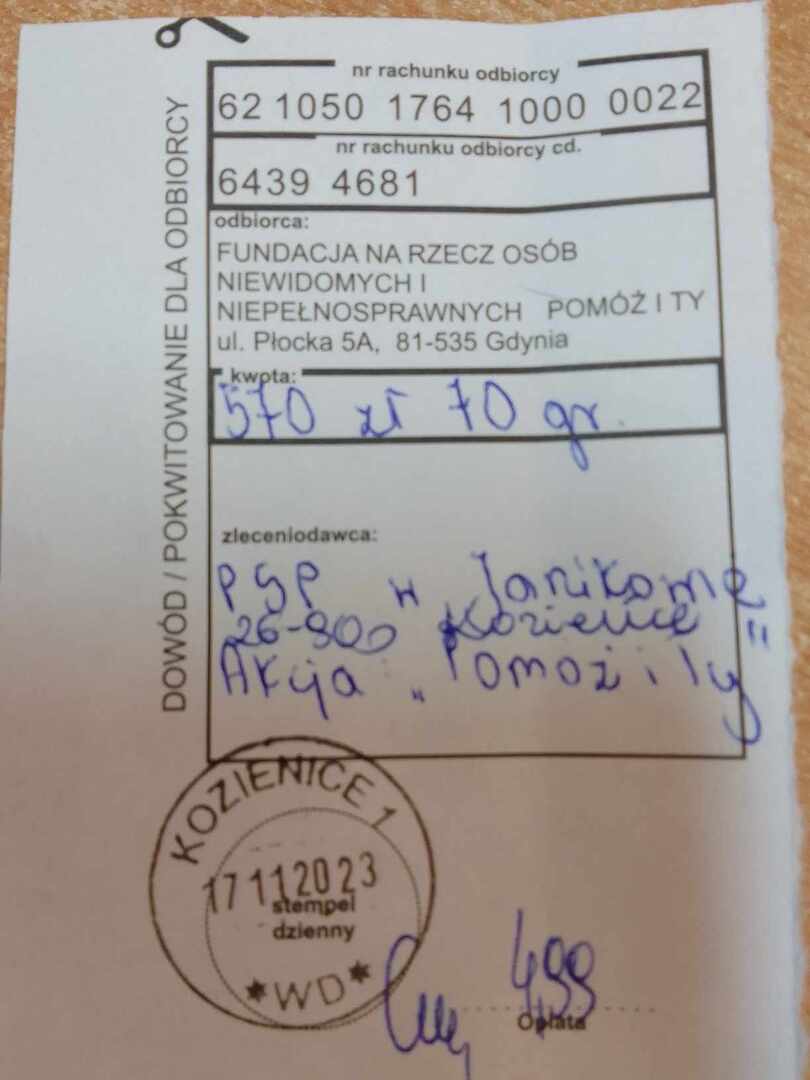 DOWÓD / POKWITOWANIE DLA ODBIORCY
nr rachunku odbiorcy
62 1050 1764 1000 0022
nr rachunku odbiorcy cd.
6439 4681
odbiorca:
FUNDACJA NA RZECZ OSÓB
NIEWIDOMYCH I
NIEPEŁNOSPRAWNYCH POMÓŻ I TY
ul. Płocka 5A, 81-535 Gdynia
kwota:
570 zł 70 gr.
zleceniodawca:
PSP w Janikowie
26-900 Kozienice
Akcja "Pomoż i Ty"
KOZIENICE 1
17 11 2023
stempel
dzienny
*WD*
4,99
Opłata